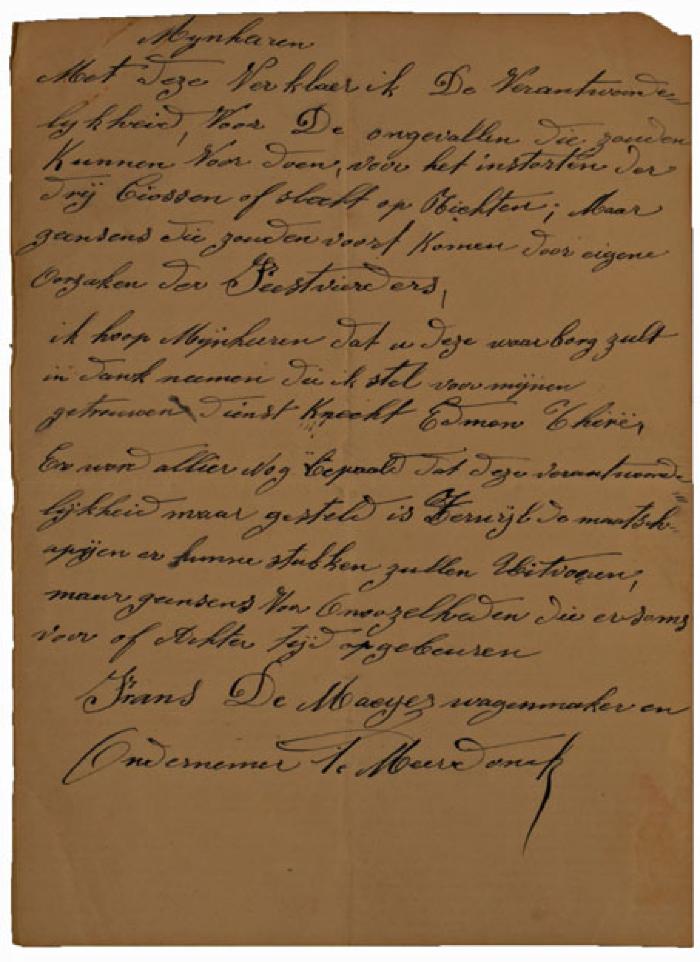 Mynheren
Met deze Verklaer ik De Verantwoorde=
lykheid, Voor De ongevallen die zouden
Kunnen Voor doen, voor het instorten der
drij Ciossen of slecht op Richten; Maar
geensens die zouden voort Komen door eigene
Oorzaken der Feestvierders,
ik hoop Mijnheeren dat u deze waarborg zult
in dank neemen die ik stel voor mijnen
getrouwen dienst Knecht Edmon Thiré,
Er word allier Nog Bepaald dat deze verantwoorde=
lijkheid maar gesteld is Terwijl de maatsch=
apijen er hunne stukken zullen Uitvoeren,
maar geensens Von Onoozelheden die er soms
voor of Achter tijd opgebeuren
Frans De Maeyer wagenmaker en
Ondernemer te Meerdonck